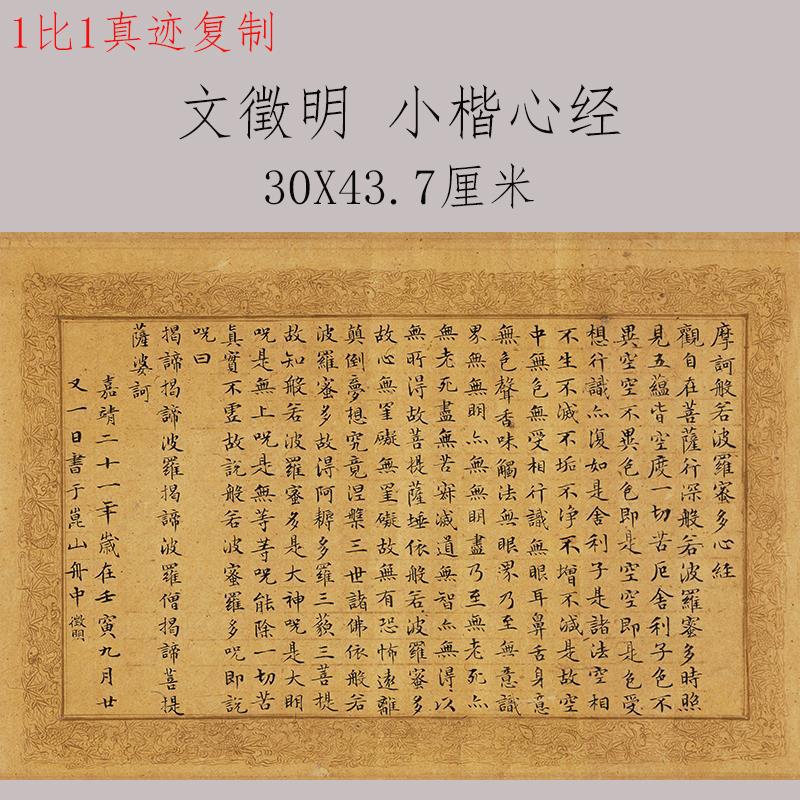 1比1真迹复制
文徵明 小楷心经
30X43.7厘米
摩訶般若波羅蜜多心經
觀自在菩薩行深般若波羅蜜多時照
見五蘊皆空度一切苦厄舍利子色不
異空空不異色色即是空空即是色受
想行識亦復如是舍利子是諸法空相
不生不滅不垢不淨不增不減是故空
中無色無受相行識無眼耳鼻舌身意
無色聲香味觸法無眼界乃至無意識
界無無明亦無無明盡乃至無老死亦
無老死盡無苦寂滅道無智亦無得以
無所得故菩提薩埵依般若波羅蜜多
故心無罣礙無罣礙故無有恐怖遠離
顛倒夢想究竟涅槃三世諸佛依般若
波羅蜜多故得阿耨多羅三藐三菩提
故知般若波羅蜜多是大神呪是大明
呪是無上呪是無等等呪能除一切苦
真實不虛故說般若波蜜羅多呪即說
呪曰
揭諦揭諦波羅揭諦波羅僧揭諦菩提
薩婆訶
嘉靖二十一年歲在壬寅九月廿
又一日書于崑山舟中 徵明